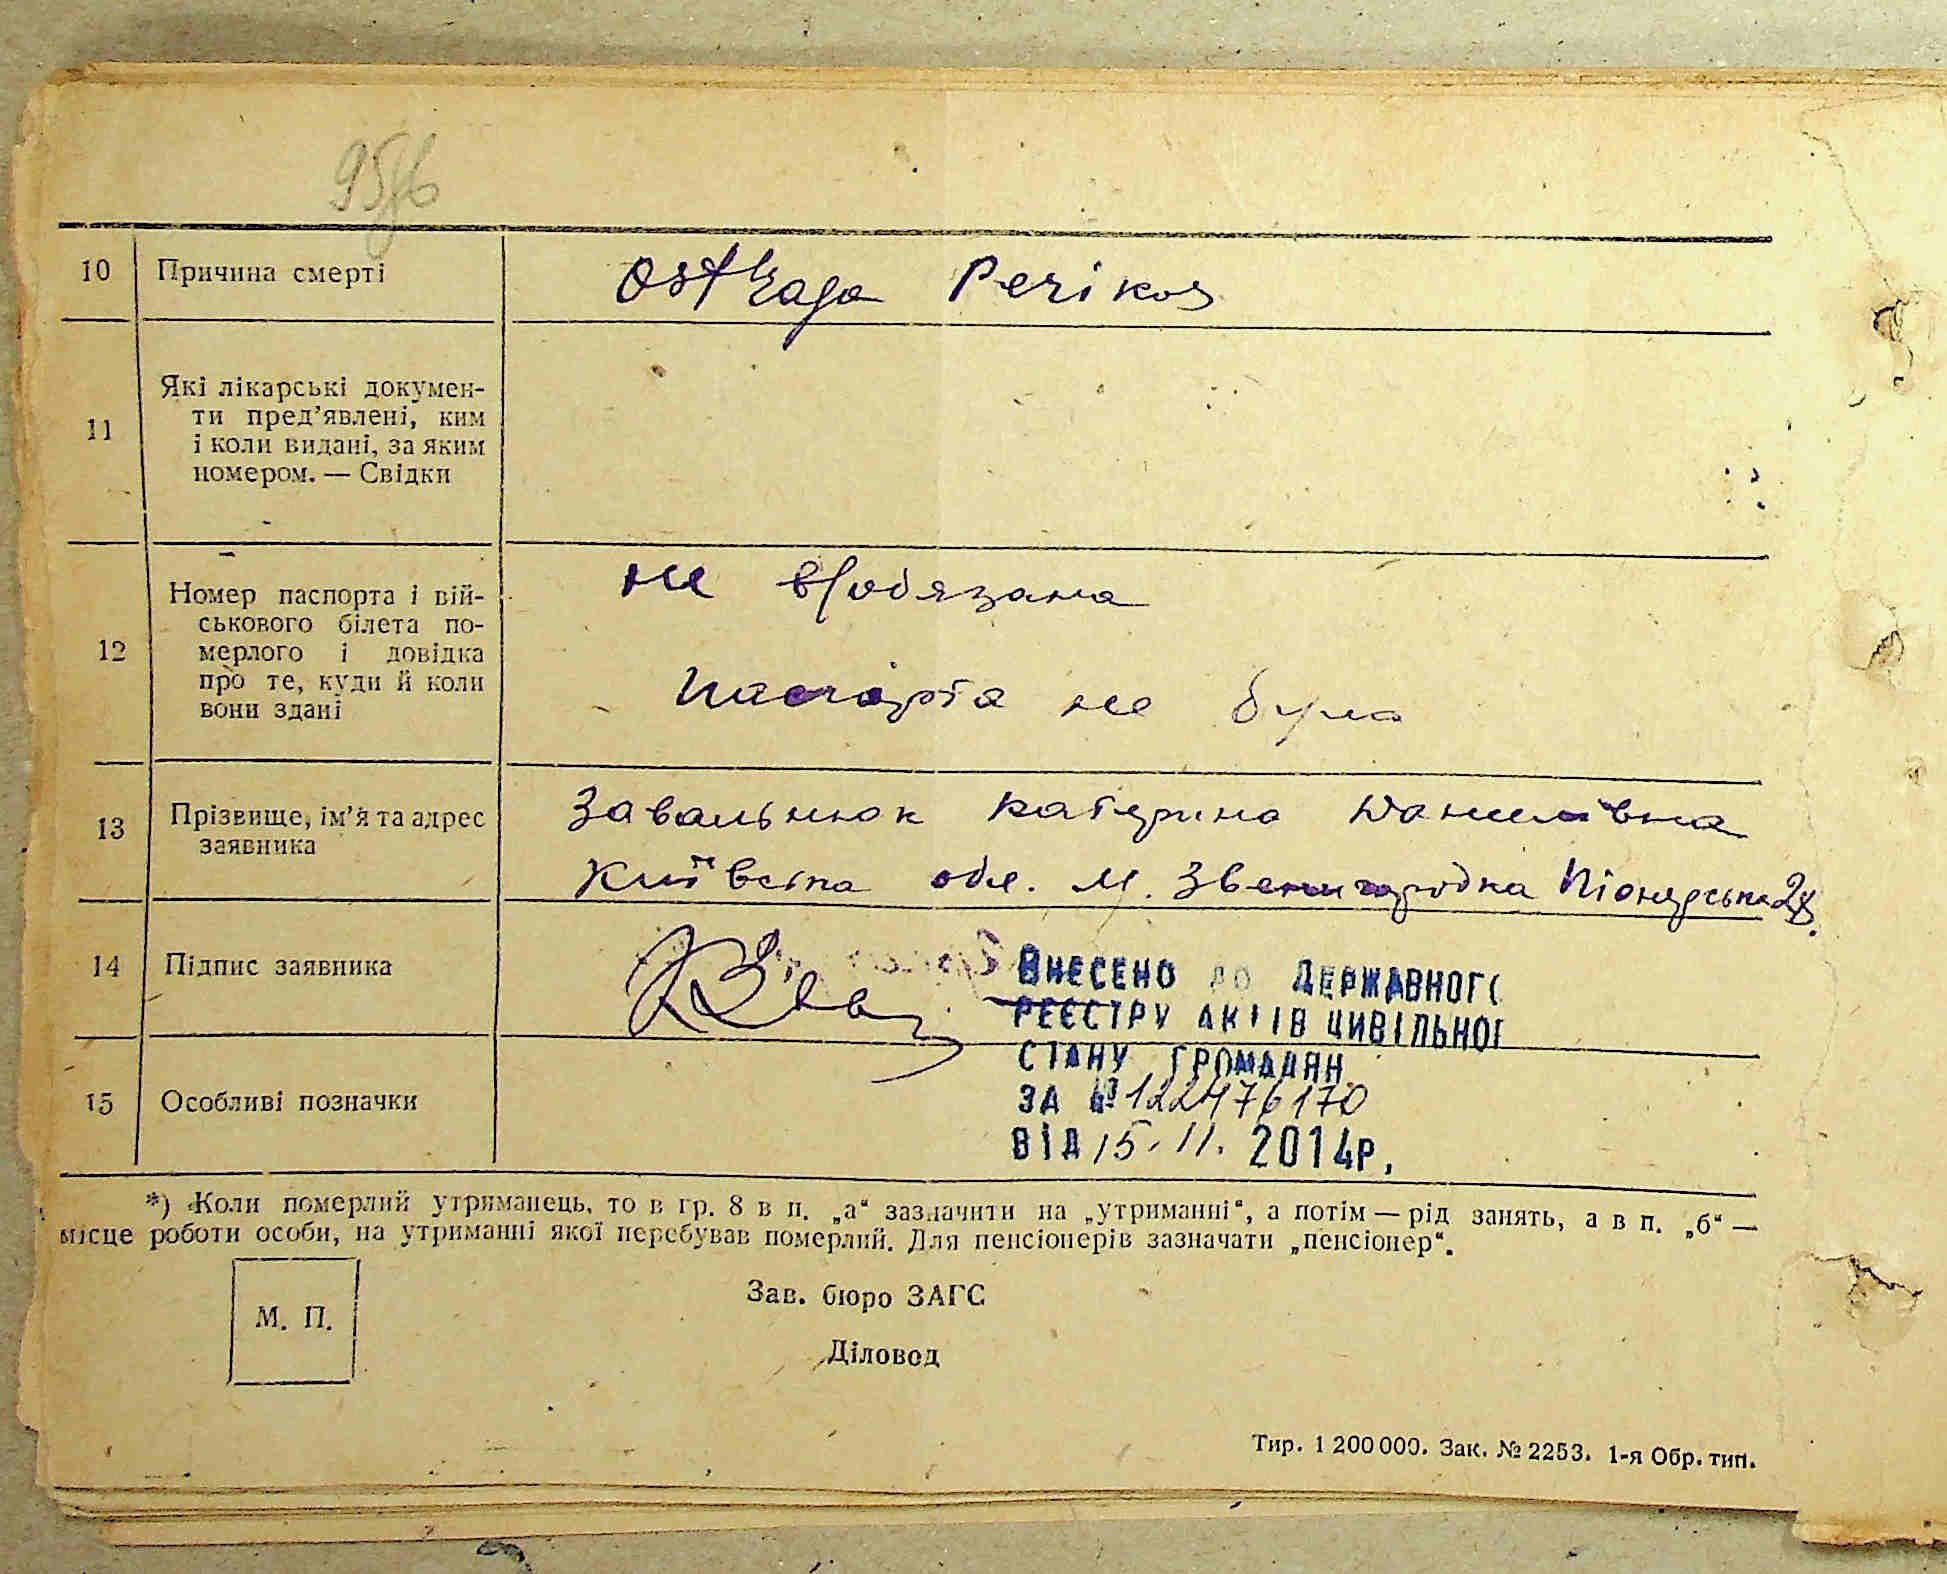 10 Причина смерті
11 Які лікарські докумен-
ти пред’явлені, ким
і коли видані, за яким
номером. — Свідки
12 Номер паспорта і вій- не в/обязана
ськового білета по-
мерлого і довідка
про те, куди й коли Паспорта не було
вони здані
13 Прізвище, ім’я та адрес Завальнюк Катерина Данилівна
заявника Київська обл. м. Звенигородка Піонерська
14 Підпис заявника
ВНЕСЕНО ДО ДЕРЖАВНОГО
РЕЄСТРУ АКТІВ ЦИВІЛЬНОГ
СТАНУ ГРОМАДЯН
ЗА №122476170
ВІД 15.11. 2014р.
15 Особливі позначки
*) Коли померлий утриманець, то в гр. 8 в п. „а“ зазначити на „утриманні“, а потім — рід занять, а в п. „б“ —
місце роботи особи, на утриманні якої перебував померлий. Для пенсіонерів зазначати „пенсіонер“.
М. П.
Зав. бюро ЗАГС
Діловод
Тир. 1 200 000. Зак. № 2253. 1-я Обр. тип.